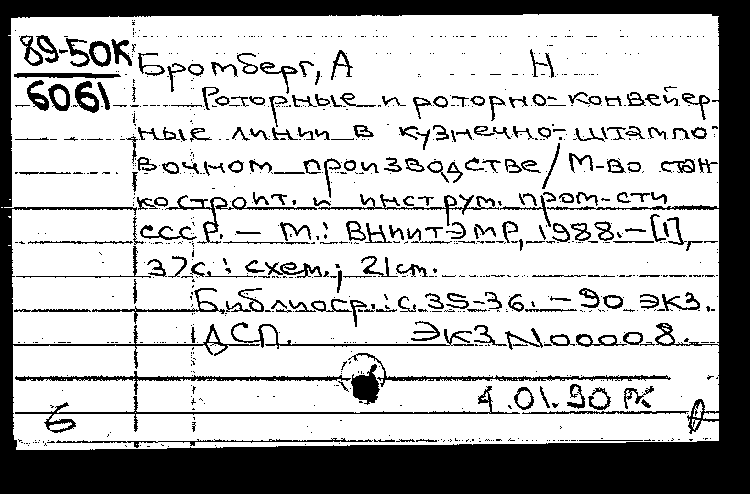 89-50К
6061
Бромберг, А Н
Роторные и роторно-конвейер-
ные линии в кузнечно-штампо-
вочном производстве / М-во стан-
костроит. и инструм. пром-сти
СССР. — М.: ВНИИТЭМР, 1988. — [1],
37с. : схем.; 21см.
Библиогр.: с. 35-36. — 90 экз.
ДСП. Экз N 00008.
4.01.90 РК
6